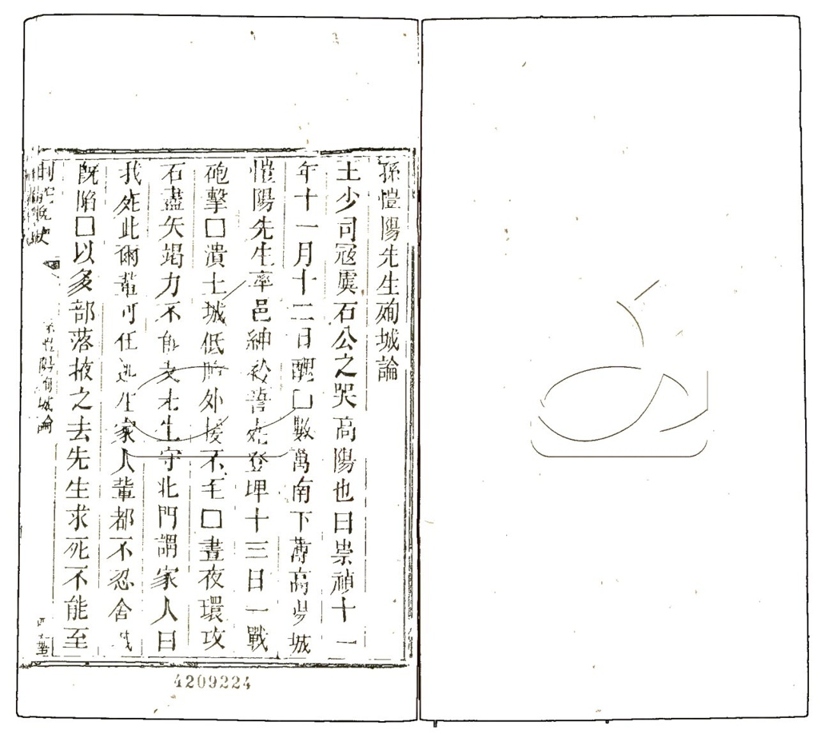 孫愷陽先生殉城論
土少司冦虞石公之哭高陽也曰崇禎十一
年十一月十二日醜囗數萬南下薄高陽城
愷陽先生率邑紳衿誓死登埤十三日一戰
砲擊囗潰土城低 外援不至囗晝夜環攻
石盡矢竭力不能支先生守北門謂家人曰
我死此爾輩可任逃生家人輩都不忍舍
旣陷囗以多部落掖之去先生求死不能至
孫愷陽殉城論
4209224